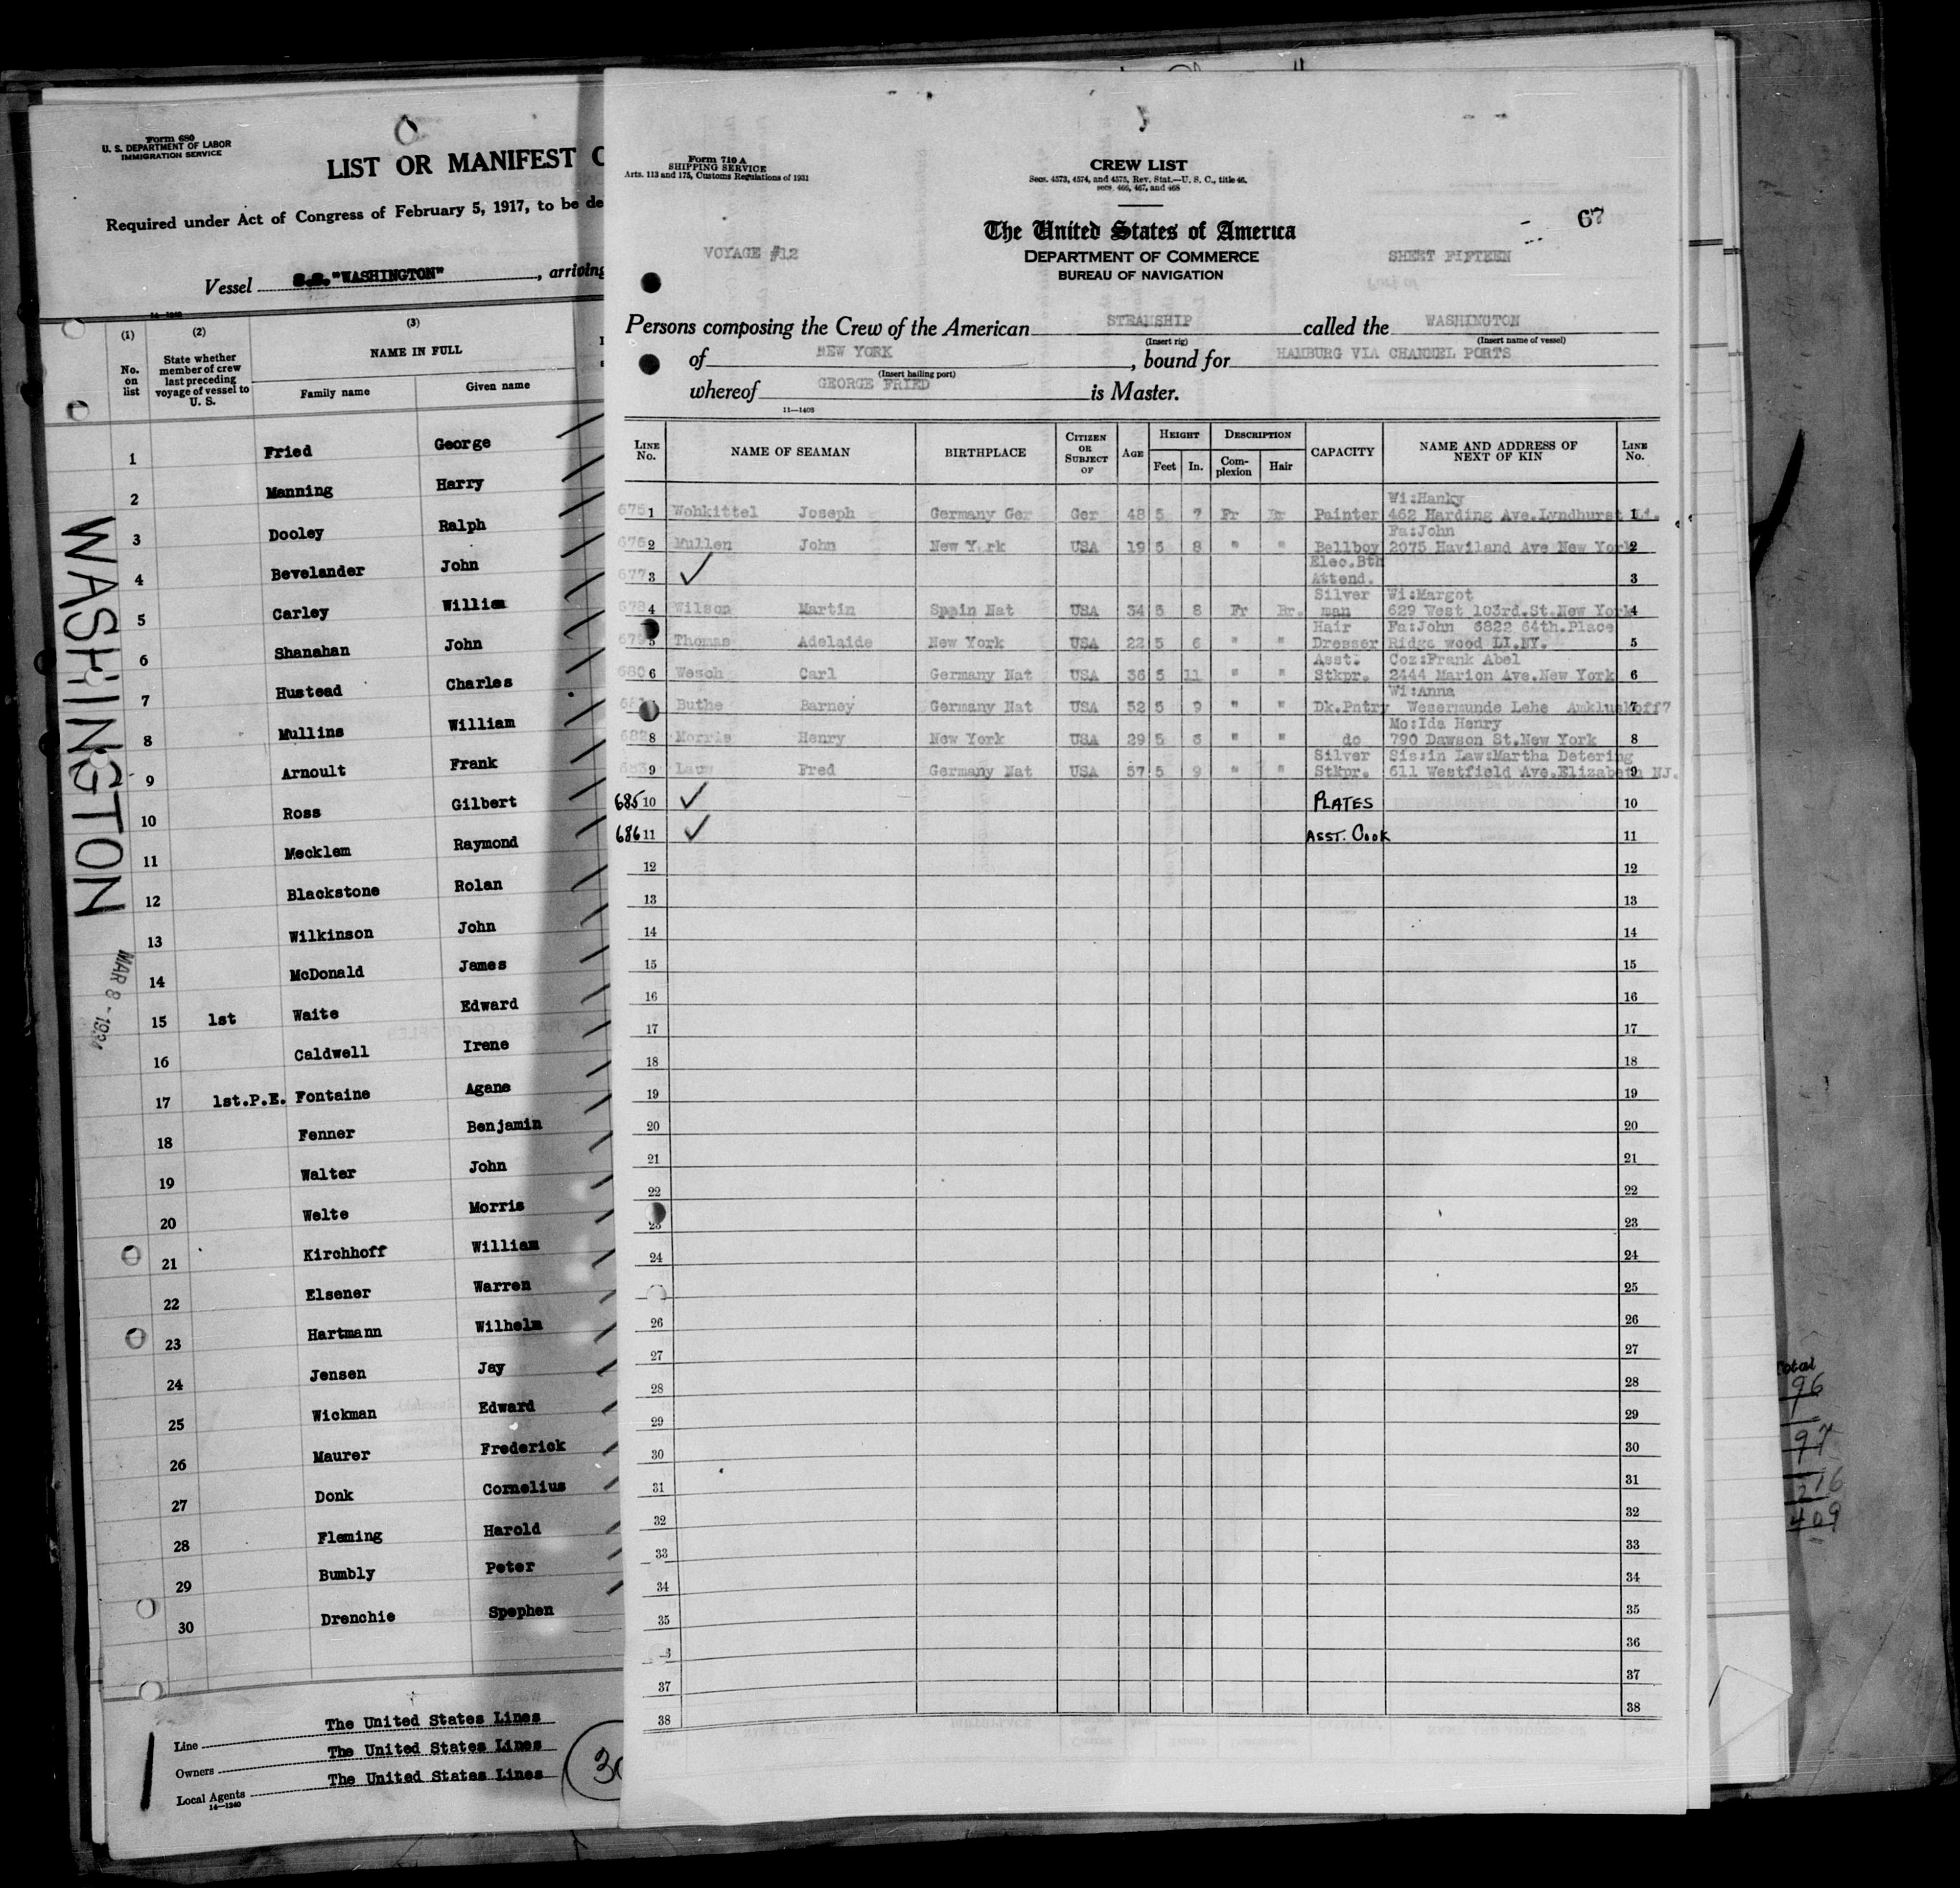 Form 680
U. S. DEPARTMENT OF LABOR
IMMIGRATION SERVICE
LIST OR MANIFEST
Required under Act of Congress of February 5, 1917, to be de
Vessel S.S. "WASHINGTON", arriving
14—1240
(1) (2) (3)
No. on list
State whether member of crew last preceding voyage of vessel to U. S.
NAME IN FULL
Family name Given name
1 Fried George
2 Manning Harry
3 Dooley Ralph
4 Bevelander John
5 Carley William
6 Shanahan John
7 Hustead Charles
8 Mullins William
9 Arnoult Frank
10 Ross Gilbert
11 Mecklem Raymond
12 Blackstone Rolan
13 Wilkinson John
14 McDonald James
15 1st Waite Edward
16 Caldwell Irene
17 1st.P.E. Fontaine Agane
18 Fenner Benjamin
19 Walter John
20 Welte Morris
21 Kirchhoff William
22 Elsener Warren
23 Hartmann Wilhelm
24 Jensen Jay
25 Wickman Edward
26 Maurer Frederick
27 Donk Cornelius
28 Fleming Harold
29 Bumbly Peter
30 Drenchie Spephen
WASHINGTON
MAR 8 - 1934
Line The United States Lines
Owners The United States Lines
Local Agents The United States Lines
14—1240
Form 710 A
SHIPPING SERVICE
Arts. 113 and 175, Customs Regulations of 1931
CREW LIST
Secs. 4573, 4574, and 4575, Rev. Stat.—U. S. C., title 46,
secs. 466, 467, and 468
67
The United States of America
VOYAGE #12
DEPARTMENT OF COMMERCE
SHEET FIFTEEN
BUREAU OF NAVIGATION
Persons composing the Crew of the American STEAMSHIP called the WASHINGTON
(Insert rig) (Insert name of vessel)
of NEW YORK, bound for HAMBURG VIA CHANNEL PORTS
(Insert hailing port)
whereof GEORGE FRIED is Master.
11—1408
LINE No. NAME OF SEAMAN BIRTHPLACE CITIZEN OR SUBJECT OF AGE HEIGHT Feet In. DESCRIPTION Complexion Hair CAPACITY NAME AND ADDRESS OF NEXT OF KIN LINE No.
Wi:Hanky
675 1 Wohkittel Joseph Germany Ger Ger 48 5 7 Fr Br Painter 462 Harding Ave.Lyndhurst 1
Fa:John
676 2 Mullen John New Y rk USA 19 5 8 " " Bellboy 2075 Haviland Ave New York 2
Elec.Bth
677 3 ✓ Attend. 3
Silver Wi:Margot
678 4 Wilson Martin Spain Nat USA 34 5 8 Fr Br. man 629 West 103rd.St.New York 4
Hair Fa:John 6822 64th.Place
679 5 Thomas Adelaide New York USA 22 5 6 " " Dresser Ridge wood LI.NY. 5
Asst. Coz:Frank Abel
680 6 Wesch Carl Germany Nat USA 36 5 11 " " Stkpr. 2444 Marion Ave.New York 6
Wi:Anna
Buthe Barney Germany Nat USA 52 5 9 " " Dk.Pntry Wesermunde Lehe 7
Mo:Ida Henry
682 8 Morris Henry New York USA 29 5 " " do 790 Dawson St.New York 8
Silver Sis:in Law:Martha Detering
9 Fred Germany Nat USA 57 5 9 " " Stkpr. 611 Westfield Ave.Elizabeth NJ. 9
685 10 ✓ PLATES 10
686 11 ✓ ASST. COOK 11
12 12
13 13
14 14
15 15
16 16
17 17
18 18
19 19
20 20
21 21
22 22
23 23
24 24
25
26 26
27 27
28 28
29 29
30 30
31 31
32 32
33 33
34 34
35 35
36
37 37
38 38
Total
96
97
409